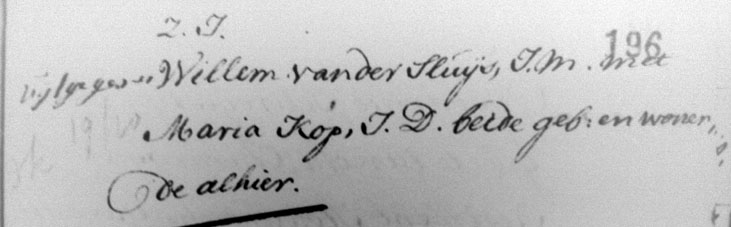 Z. J.
196
Willem van der Sluijs, J. M. met
Maria Kop, J. D. beide geb: en wonen,
de alhier.